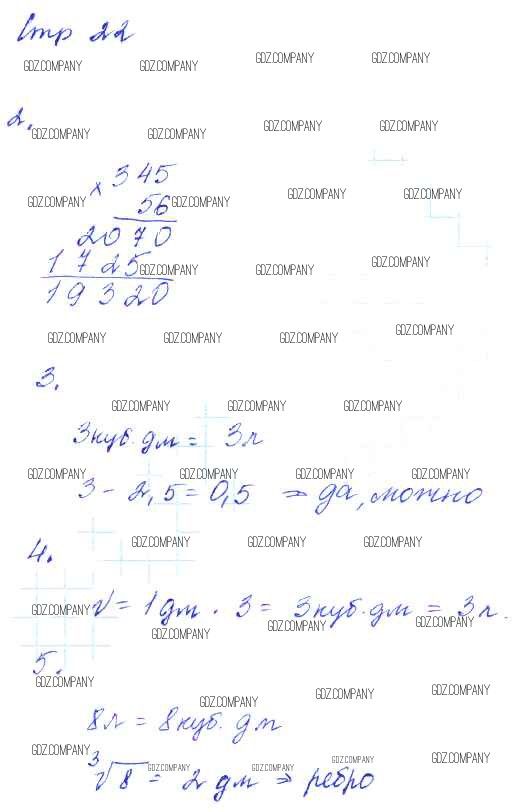 Стр 22
GDZ.COMPANY GDZ.COMPANY GDZ.COMPANY GDZ.COMPANY
2.
GDZ.COMPANY GDZ.COMPANY GDZ.COMPANY GDZ.COMPANY
× 345
56
GDZ.COMPANY GDZ.COMPANY GDZ.COMPANY GDZ.COMPANY
2070
1725
GDZ.COMPANY GDZ.COMPANY GDZ.COMPANY
19320
GDZ.COMPANY GDZ.COMPANY GDZ.COMPANY GDZ.COMPANY
3.
GDZ.COMPANY GDZ.COMPANY GDZ.COMPANY
3куб. дм = 3л
GDZ.COMPANY GDZ.COMPANY GDZ.COMPANY GDZ.COMPANY
3 - 2,5 = 0,5 ⇒ да, можно
GDZ.COMPANY GDZ.COMPANY GDZ.COMPANY
4.
V = 1дм · 3 = 3куб. дм = 3л.
GDZ.COMPANY GDZ.COMPANY GDZ.COMPANY GDZ.COMPANY
5.
GDZ.COMPANY GDZ.COMPANY GDZ.COMPANY GDZ.COMPANY
8л = 8куб. дм
GDZ.COMPANY GDZ.COMPANY GDZ.COMPANY GDZ.COMPANY
∛8 = 2 дм ⇒ ребро